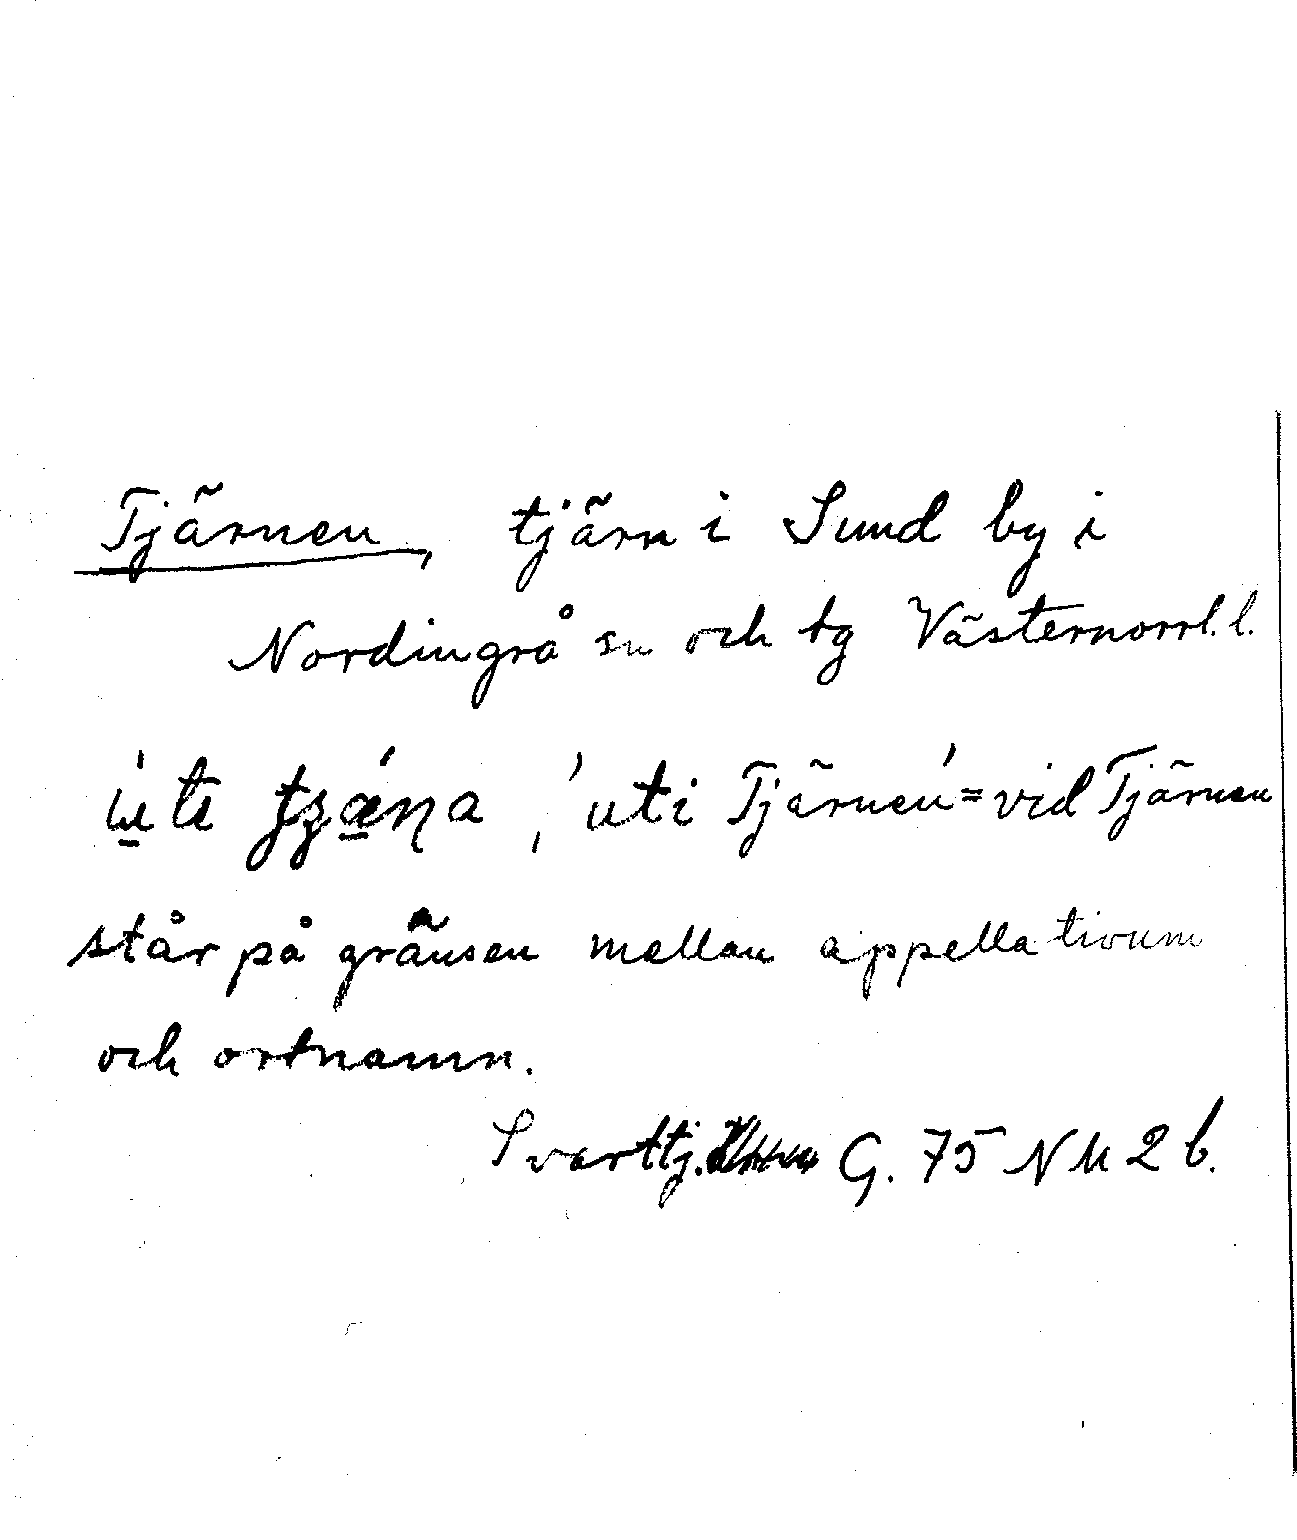 Tjärnen, tjärn i Sund by i
Nordingrå sn och tg Västernorrl. l.
, 'uti Tjärnen' = vid Tjärnen
står på gränsen mellan appellativum
och ortnamn.
Svarttj. G. 75 NM 2 b.